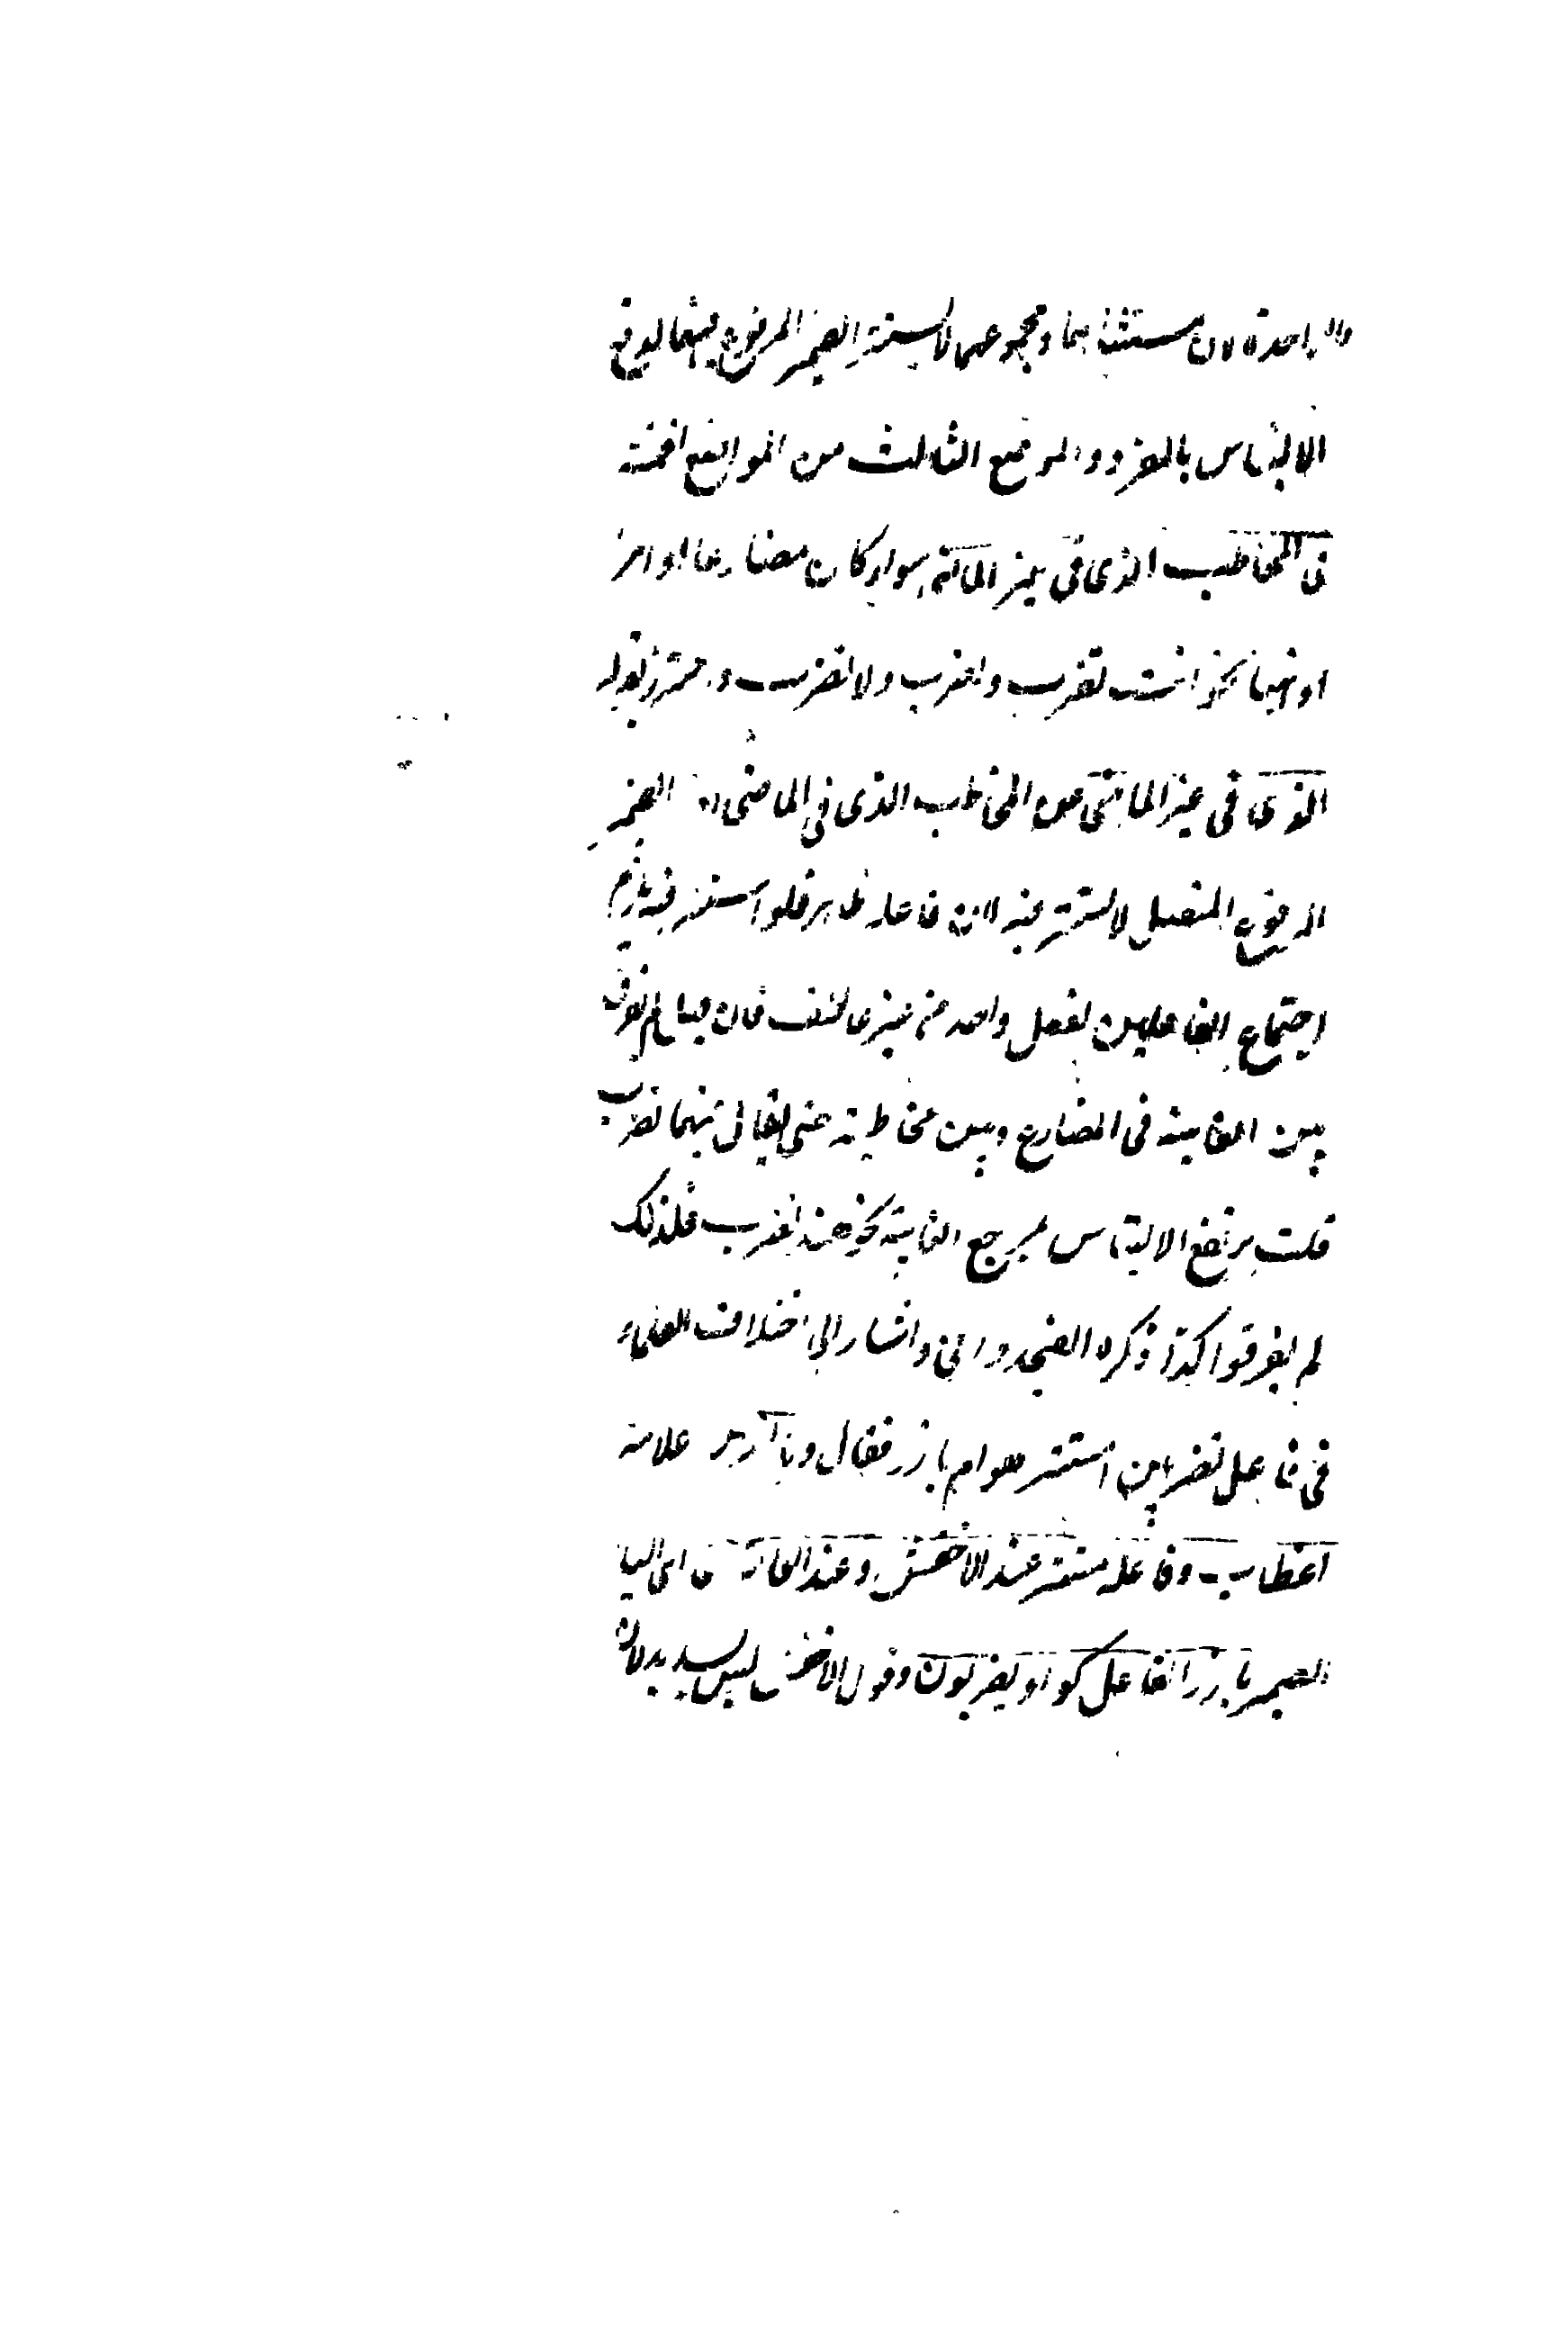 والواحدة لان مستثنا بهما ومجموعهما لا يستتر الضمير المرفوع فيهما لوقع
الالتباس بالمفرد والموضع الثالث من المواضع الخمسة
فى المخاطب الذى فى غير الماضى سواء كان مضارعا او امرا
او نهيا نحو انت تضرب واضرب ولا تضرب واحترز بقوله
الذى فى غير الماضى عن المخاطب الذى فى الماضى لان الضمير
المرفوع المتصل لا يستتر فيه لان فاعله ظاهر فلو استتر فيه يلزم
اجتماع الفاعلين لفعل واحد من غير عاطف فان قيل لم لم يفرق
بين الغائبة فى المضارع وبين مخاطبه حتى يقال فيهما تضرب
قلت يرتفع الالتباس بمرجع الغائبة نحو هند تضرب فلذلك
لم يفرقوا كذا ذكره واشار الى اختلاف العلماء
فى فاعل تضربين استتر هو ام بارز فقال وياء تضربين علامة
الخطاب وفاعله مستتر عند الاخفش وعند العامة اى الياء
الضمير بارز الفاعل كواو يضربون وقول الاخفش ليس بسديد لان